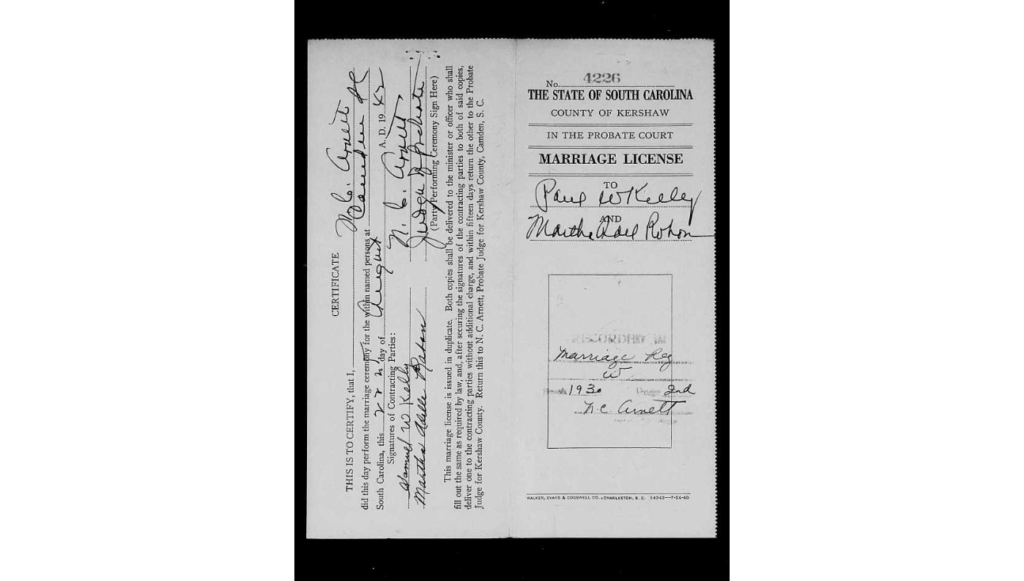 CERTIFICATE
THIS IS TO CERTIFY, that I, N. C. Arnett
did this day perform the marriage ceremony for the within named persons at Camden SC
South Carolina, this 2nd day of August A. D. 1942
Signatures of Contracting Parties:
Samuel W Kelly N. C. Arnett
Martha Judge of Probate
(Party Performing Ceremony Sign Here)
This marriage license is issued in duplicate. Both copies shall be delivered to the minister or officer who shall
fill out the same as required by law, and, after securing the signatures of the contracting parties to both of said copies,
deliver one to the contracting parties without additional charge, and within fifteen days return the other to the Probate
Judge for Kershaw County. Return this to N. C. Arnett, Probate Judge for Kershaw County, Camden, S. C.
No. 4226
THE STATE OF SOUTH CAROLINA
COUNTY OF KERSHAW
IN THE PROBATE COURT
MARRIAGE LICENSE
TO
Paul W Kelley
AND
Martha
RECORDED IN
Marriage Reg
W
193 2nd
N. C. Arnett
WALKER, EVANS & COGSWELL CO., CHARLESTON, S. C.